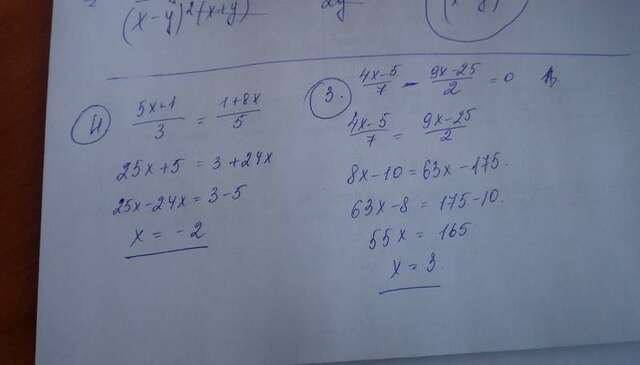 (x-y)²(x+y) 2y
4 (5x+1)/3 = (1+8x)/5
25x+5 = 3+24x
25x-24x = 3-5
x = -2
3. (4x-5)/7 - (9x-25)/2 = 0
(4x-5)/7 = (9x-25)/2
8x-10 = 63x-175.
63x-8 = 175-10.
55x = 165
x = 3